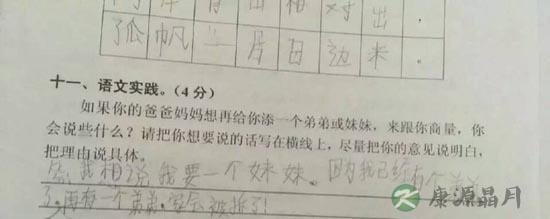 对 出
孤 帆 一 片 日 边 来 。
十一、语文实践。(4分)
如果你的爸爸妈妈想再给你添一个弟弟或妹妹,来跟你商量,你
会说些什么?请把你想要说的话写在横线上,尽量把你的意见说明白,
把理由说具体。
答:我相说我要一个妹妹。因为我已经有个弟弟
了,再有一个弟弟,家会被拆了!
康源晶月